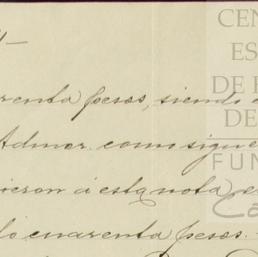 renta pesos, siendo
Admor. como sigue
ieron á esta nota, e
lo cuarenta pesos.-
CEN
ES
DE
DE
FUN
Ca